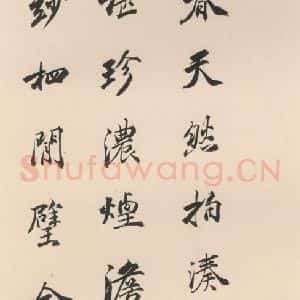 春天然拍湊
堪珍濃煙澹
抄把閒壁合
Shufawang.CN